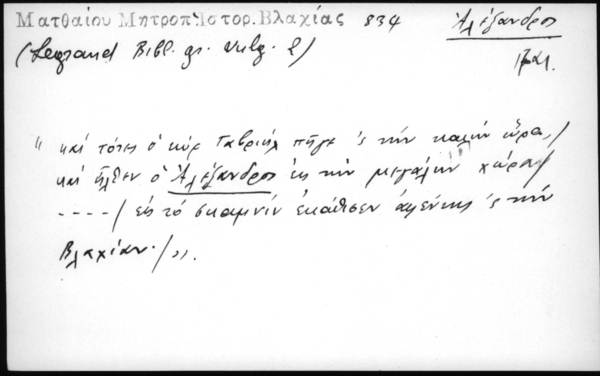 Ματθαίου Μητροπ. Ἱστορ. Βλαχίας 834 Ἀλέξανδρος
(Legrand Bibl. gr. vulg. 2)
" καὶ τότες ὁ κὺρ Γαβριὴλ πῆγε 'ς τὴν καλὴν ὥρα,/
καὶ ἦλθεν ὁ Ἀλέξανδρος εἰς τὴν μεγάλην χώρα/
----/ εἰς τὸ σκαμνὶν ἐκάθισεν ἀφέντης 'ς τὴν
Βλαχίαν./".